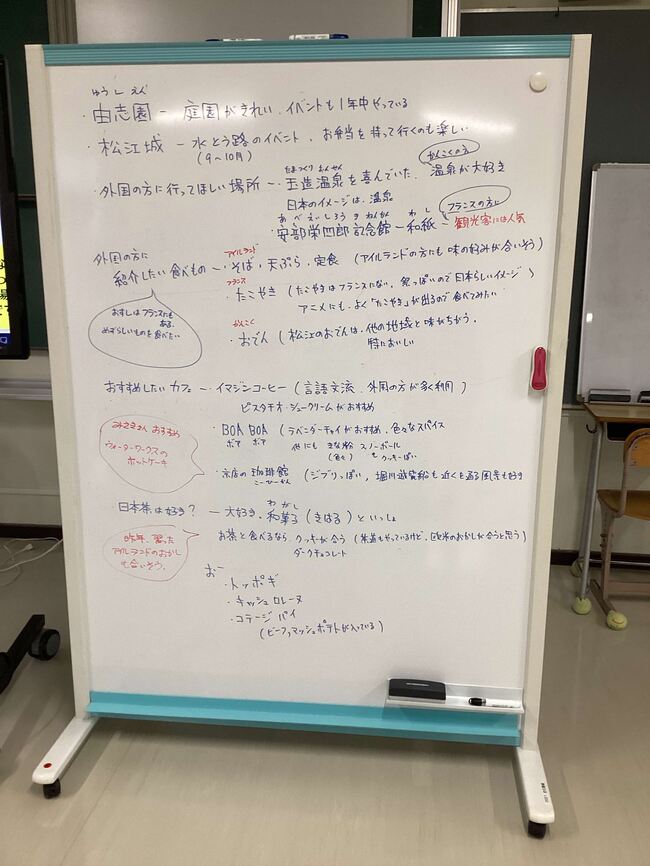 ゆうしえん
・由志園 ー 庭園がきれい、イベントも1年中やっている
・松江城 ー 水とう路のイベント、お弁当を持って行くのも楽しい
(9〜10月)
かんこくの方
たまつくりおんせん
・外国の方に行ってほしい場所 ー・玉造温泉を喜んでいた、温泉が大好き
日本のイメージは、温泉
フランスの方に
あべえいしろうきねんかん わし
・安部栄四郎記念館 ー 和紙 ー 観光客には人気
外国の方に
紹介したい食べもの ー
アイルランド
・そば、天ぷら、定食 (アイルランドの方にも味の好みが合いそう)
フランス
・たこやき (たこやきはフランスにない、祭っぽいので日本らしいイメージ)
アニメにも、よく「たこやき」が出るので食べてみたい
おすしはフランスにも
ある。
めずらしいものを食べたい
かんこく
・おでん (松江のおでんは、他の地域と味がちがう。
特においしい
おすすめしたいカフェ ー・イマジンコーヒー (言語交流、外国の方が多く利用)
ピスタチオ・シュークリームがおすすめ
・BOA BOA (ラベンダーチャイがおすすめ、色々なスパイス
ボア ボア 他にも きな粉 スノーボール
(色々) も クッキーぽい
みさきさんおすすめ
ウォーターワークスの
ホットケーキ
・京店の珈琲館 (ジブリっぽい、堀川遊覧船も近くを通る風景も好き
こーひーかん
・日本茶は好き? ー 大好き、和菓子(きはる)といっしょ
わがし
お茶と食べるなら、クッキーが合う (茶道もやっているけど、欧米のおかしが合うと思う)
ダークチョコレート
昨年、習った
アイルランドのおかし
も合いそう。
・トッポギ
・キッシュロレーヌ
・コテージパイ
(ビーフ、マッシュポテトが入っている)